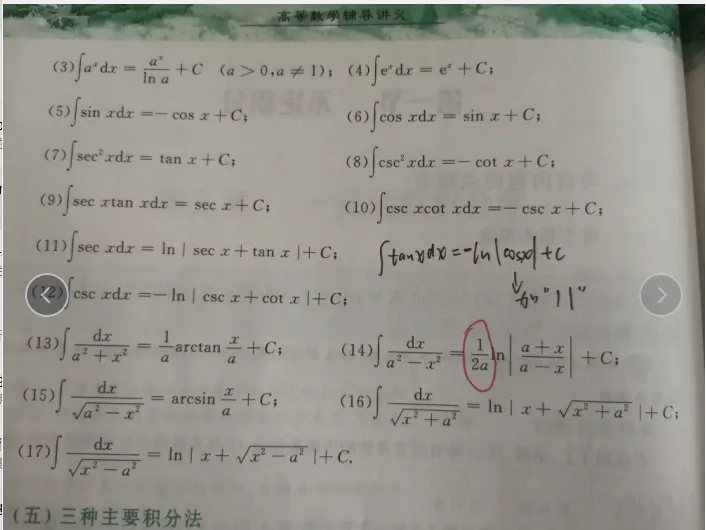 高等数学辅导讲义
(3)∫aˣdx = aˣ/ln a + C (a > 0, a ≠ 1); (4)∫eˣdx = eˣ + C;
(5)∫sin xdx = − cos x + C; (6)∫cos xdx = sin x + C;
(7)∫sec² xdx = tan x + C; (8)∫csc² xdx = − cot x + C;
(9)∫sec xtan xdx = sec x + C; (10)∫csc xcot xdx = − csc x + C;
(11)∫sec xdx = ln | sec x + tan x | + C; ∫tanxdx = −ln|cosx| + C
(12)∫csc xdx = − ln | csc x + cot x | + C; ↓ "||"
(13)∫dx/(a² + x²) = 1/a arctan x/a + C; (14)∫dx/(a² − x²) = 1/2a ln|(a + x)/(a − x)| + C;
(15)∫dx/√(a² − x²) = arcsin x/a + C; (16)∫dx/√(x² + a²) = ln | x + √(x² + a²) | + C;
(17)∫dx/√(x² − a²) = ln | x + √(x² − a²) | + C.
(五) 三种主要积分法